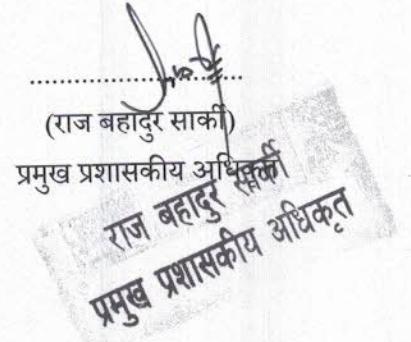 ....................
(राज बहादुर सार्की)
प्रमुख प्रशासकीय अधिकृत
राज बहादुर सार्की
प्रमुख प्रशासकीय अधिकृत